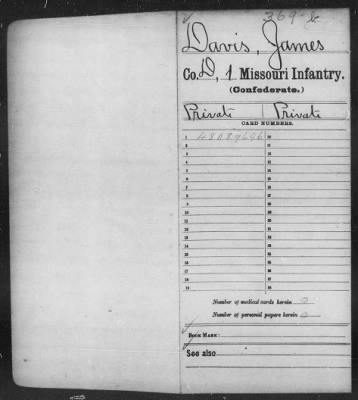 Davis, James
Co. D, 1 Missouri Infantry.
(Confederate.)
Private Private
CARD NUMBERS.
1 20
2 21
3 22
4 23
5 24
6 25
7 26
8 27
9 28
10 29
11 30
12 31
13 32
14 33
15 34
16 35
17 36
18 37
19 38
Number of medical cards herein 0
Number of personal papers herein 0
BOOK MARK:
See also